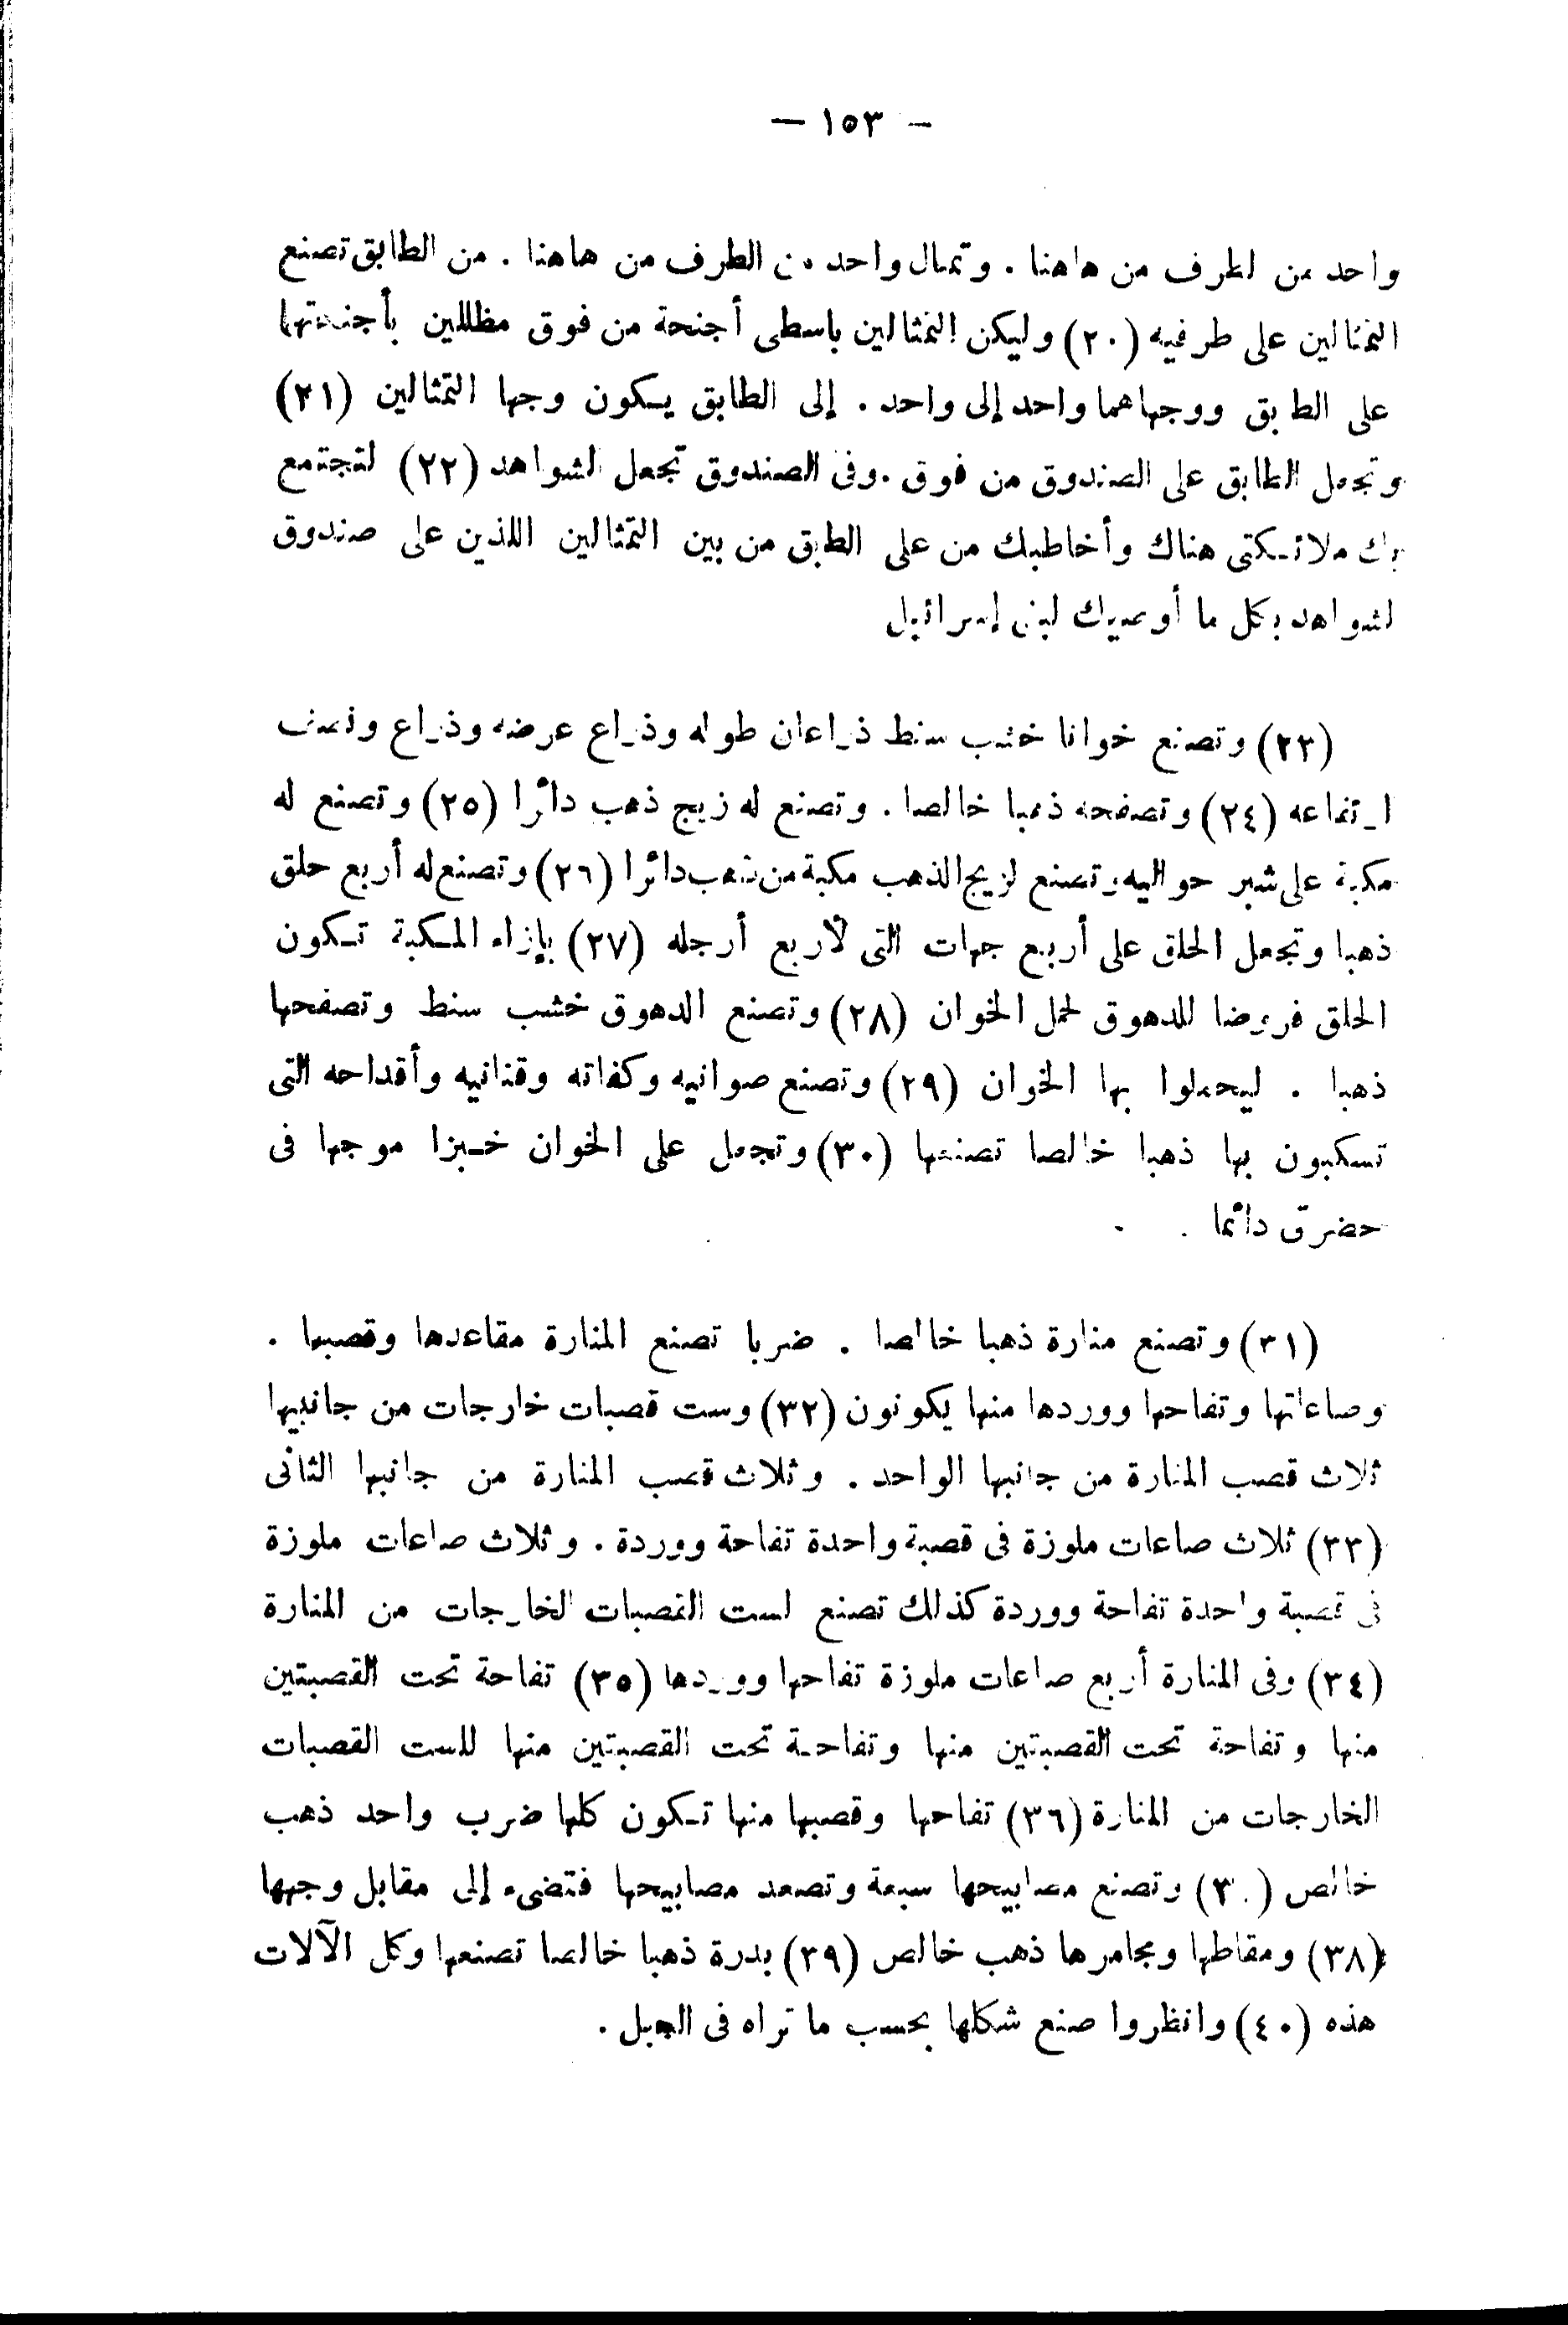 — ١٥٣ —
واحد من الطرف من هاهنا . وتمثال واحد من الطرف من هاهنا . من الطابق تصنع
التمثالين على طرفيه (٢٠) وليكن التمثالين باسطى أجنحة من فوق مظللين بأجنحتهما
على الطابق ووجهاهما واحد إلى واحد . إلى الطابق يكون وجها التمثالين (٢١)
وتجعل الطابق على الصندوق من فوق . وفى الصندوق تجعل الشواهد (٢٢) لتجتمع
بك ملائكتى هناك وأخاطبك من على الطابق من بين التمثالين اللذين على صندوق
الشواهد بكل ما أوصيك لبنى إسرائيل
(٢٣) وتصنع خوانا خشب سنط ذراعان طوله وذراع عرضه وذراع ونصف
ارتفاعه (٢٤) وتصفحه ذهبا خالصا . وتصنع له زيج ذهب دائرا (٢٥) وتصنع له
مكبة على شبر حواليه وتصنع لزيج الذهب مكبة من ذهب دائرا (٢٦) وتصنع له أربع حلق
ذهبا وتجعل الحلق على أربع جهات التى لأربع أرجله (٢٧) بإزاء المكبة تكون
الحلق فروضا للدهوق لحمل الخوان (٢٨) وتصنع الدهوق خشب سنط وتصفحها
ذهبا . ليحملوا بها الخوان (٢٩) وتصنع صوانيه وكفاته وقنانيه وأقداحه التى
تسكبون بها ذهبا خالصا تصنعها (٣٠) وتجعل على الخوان خبزا موجها فى
حضرتى دائما .
(٣١) وتصنع منارة ذهبا خالصا . ضربا تصنع المنارة مقاعدها وقصبها .
وصاعاتها وتفاحها ووردها منها يكونون (٣٢) وست قصبات خارجات من جانبيها
ثلاث قصب المنارة من جانبها الواحد . وثلاث قصب المنارة من جانبها الثانى
(٣٣) ثلاث صاعات ملوزة فى قصبة واحدة تفاحة ووردة . وثلاث صاعات ملوزة
فى قصبة واحدة تفاحة ووردة كذلك تصنع لست القصبات الخارجات من المنارة
(٣٤) وفى المنارة أربع صاعات ملوزة تفاحها ووردها (٣٥) تفاحة تحت القصبتين
منها وتفاحة تحت القصبتين منها وتفاحة تحت القصبتين منها للست القصبات
الخارجات من المنارة (٣٦) تفاحها وقصبها منها تكون كلها ضرب واحد ذهب
خالص وتصنع مصابيحها سبعة وتصعد مصابيحها فتضىء إلى مقابل وجهها
(٣٨) ومقاطها ومجامرها ذهب خالص (٣٩) بدرة ذهبا خالصا تصنعها وكل الآلات
هذه (٤٠) وانظروا صنع شكلها بحسب ما تراه فى الجبل .